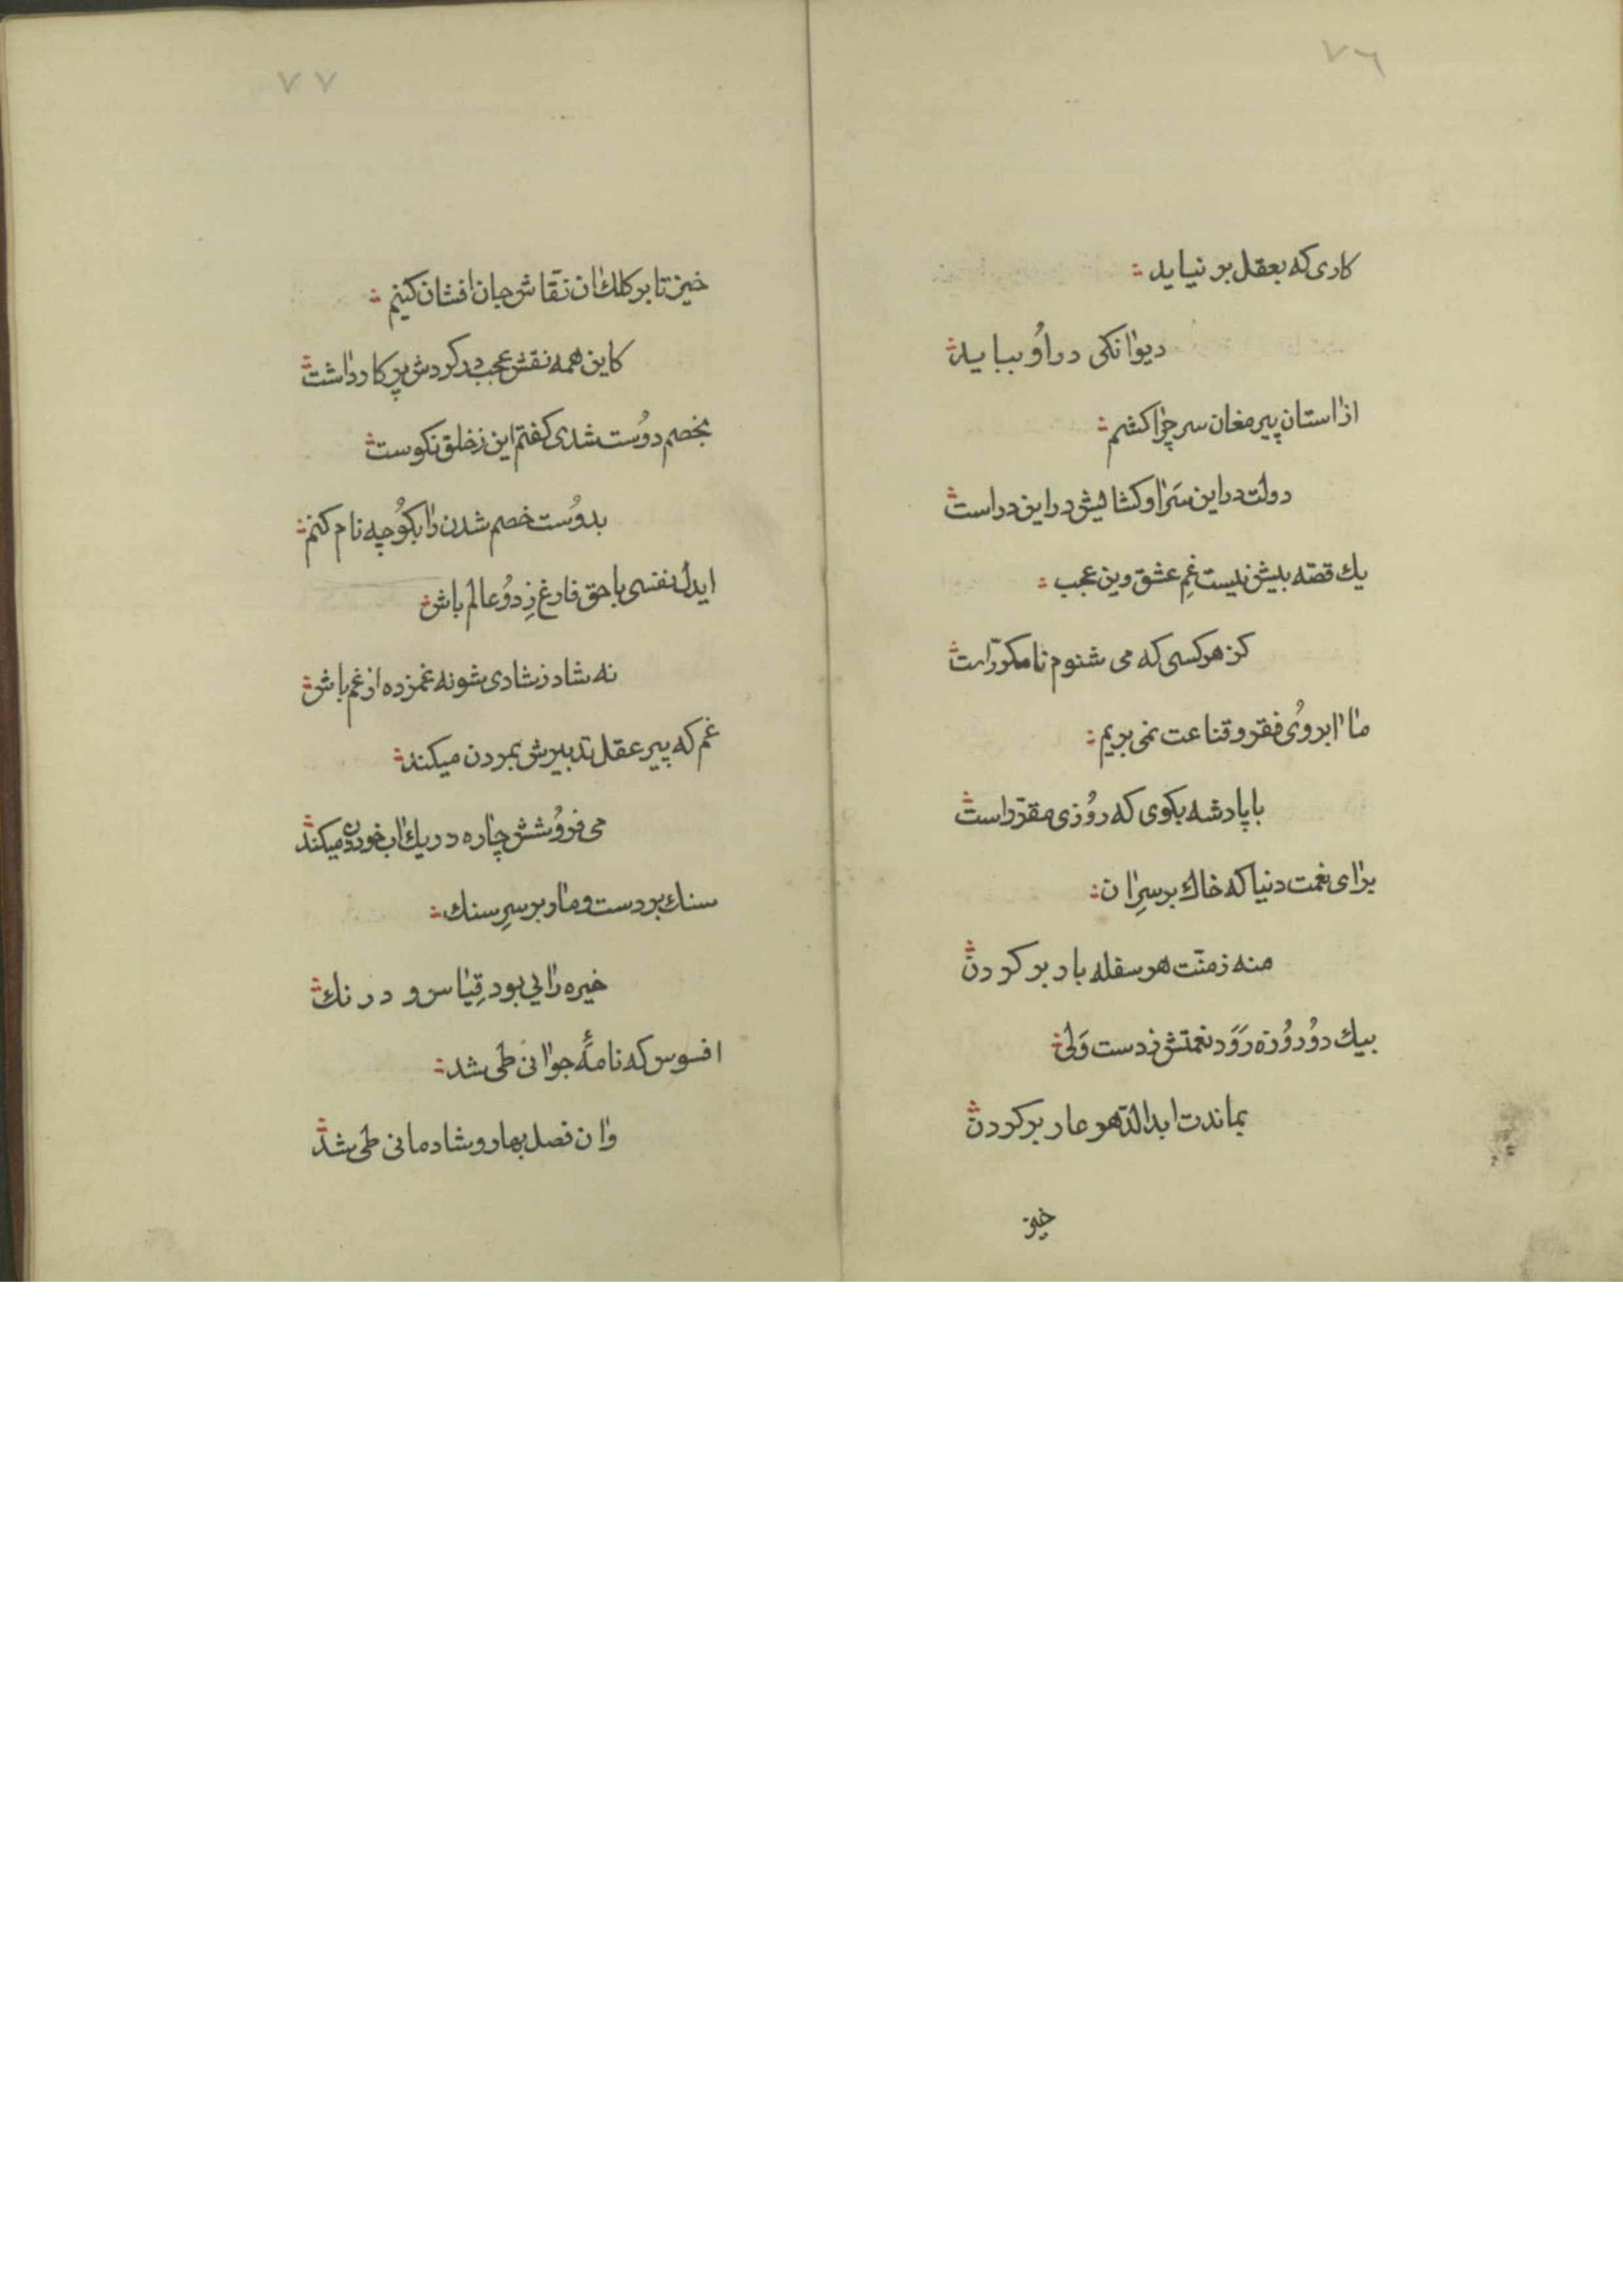 ٧٦
كارى كه بعقل بر نيايد
ديوانكى در اوُ ببايد
از استان پير مغان سر چرا كشم
دولت در اين سَرا و كشايش در اين در است
يك قصّه بيش نيست غمِ عشق وين عجب
كز هر كسى كه مى شنوم نامكرّر است
ما ابروىُ فقر و قناعت نمى بريم
با پادشه بكوى كه روُزى مقرّر است
براى نعمت دنيا كه خاك بر سرِ ان
منه ز منّت هر سفله بار بر كردن
بيك دوُ روُزه رَوَد نعمتش ز دست وَلى
بماندت ابد الدّهر عار بر كردن
خيز
٧٧
خيز تا بر كلك ان نقّاش جان افشان كنيم
كاين همه نقش عجب در كردش پركار داشت
بخصم دوُست شدى كفتم اين ز خلق نكوست
بدوُست خصم شدن را بكوُ چه نام كنم
ايدل نفسى با حق فارغ زِ دوُ عالم باش
نه شاد ز شادى شو نه غمزده از غم باش
غم كه پير عقل تدبيرش بمردن ميكند
مى فروُشش چاره در يك اب خوردن ميكند
سنك بر دست و مار بر سرِ سنك
خيره رايى بود قِياس و درنك
افسوس كه نامهٔ جوانى طى شد
وان فصل بهار و شادمانى طى شد